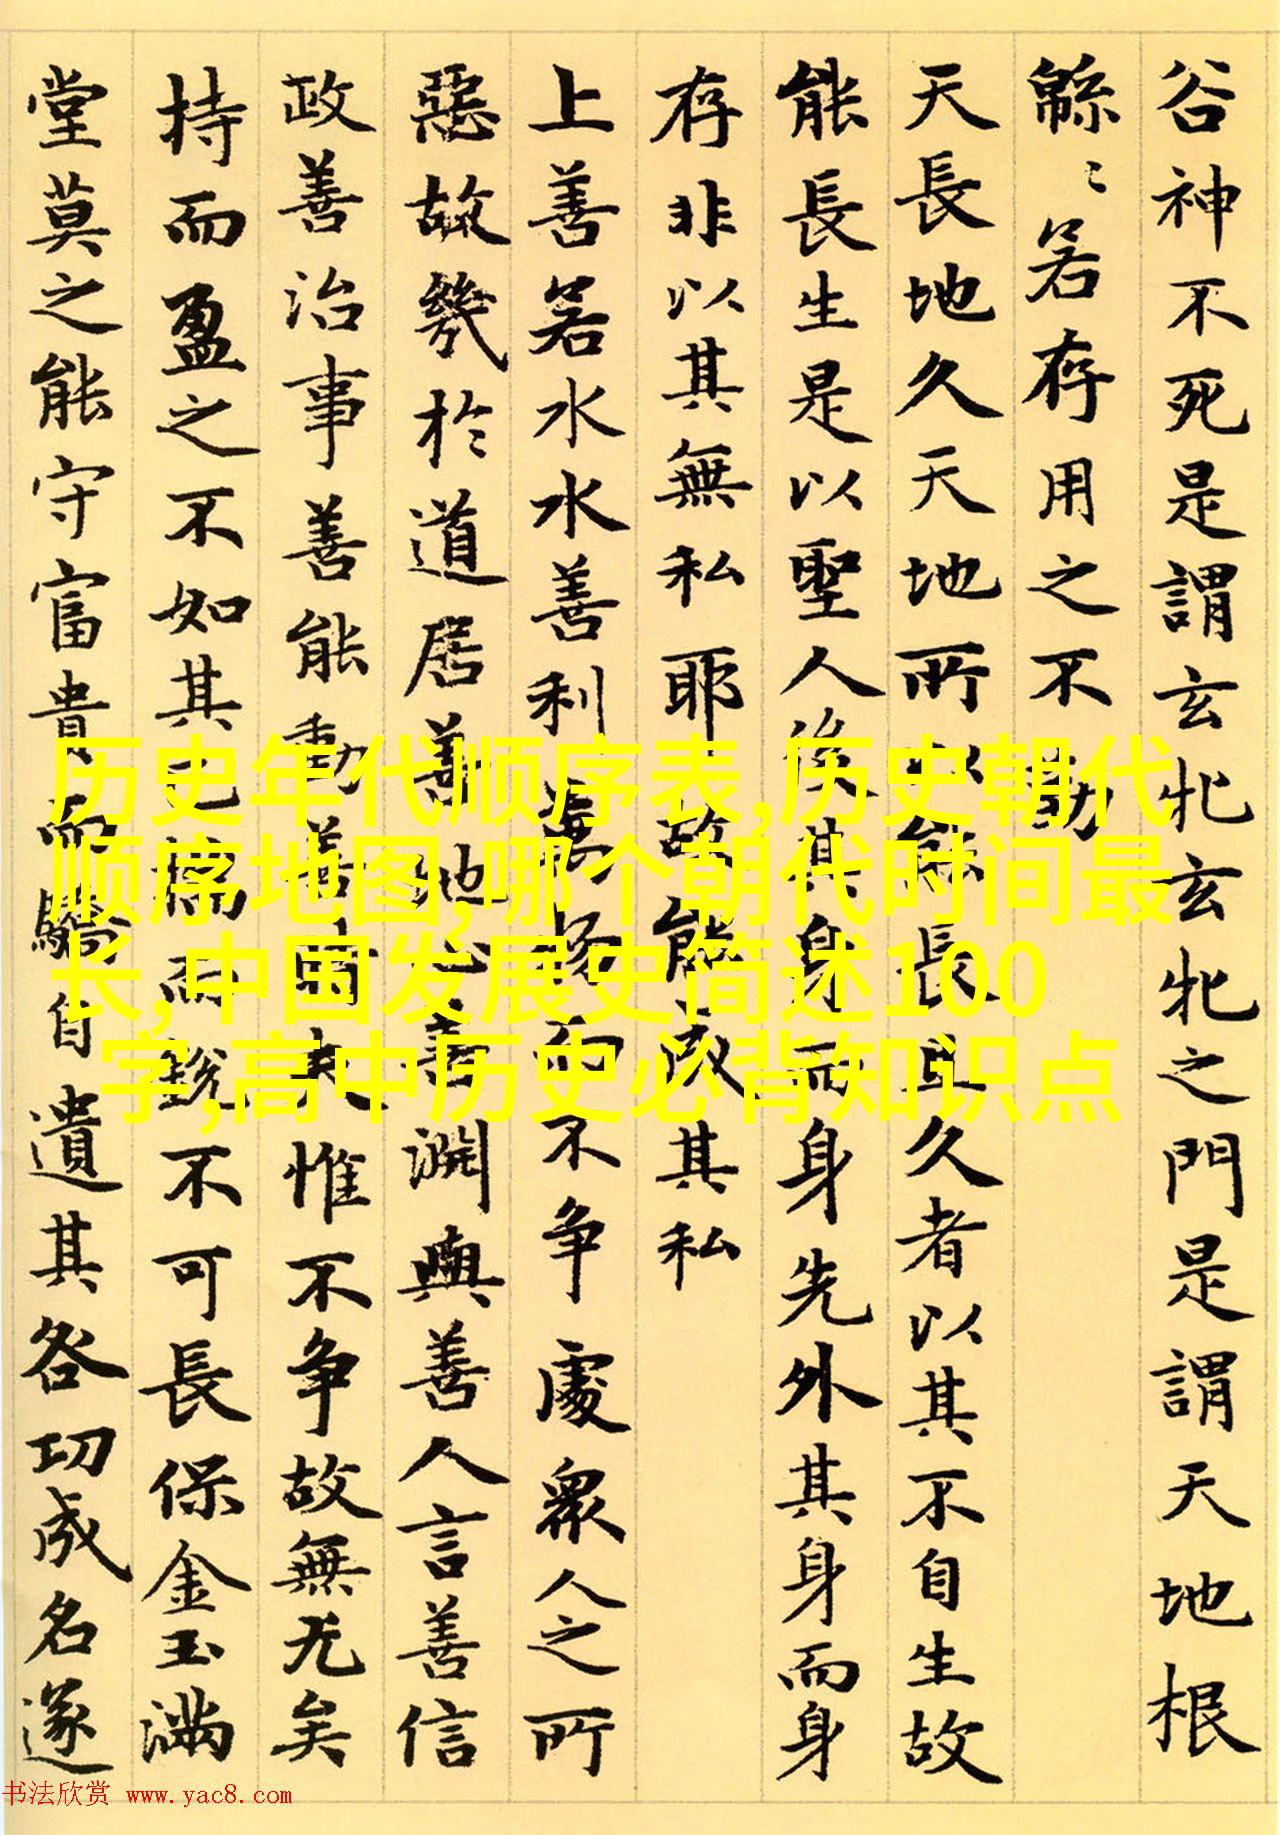 谷神不死是謂玄牝玄牝之門是謂天地根
緜〻若存用之不勤
天長地久天地所以能長且久者以其不自生故
能長生是以聖人後其身而身先外其身而身
存非以其無私耶故能成其私
上善若水水善利萬物而不争處衆人之所
惡故幾於道居善地心善淵與善人言善信
政善治事善能動善時夫惟不争故無尤矣
持而盈之不如其已揣而銳不可長保金玉滿
堂莫之能守富貴而驕自遺其咎功成名遂
历史年代顺序表,历史朝代
顺序地图,哪个朝代时间最
长,中国发展史简述100
字,高中历史必背知识点
书法欣赏 www.yac8.com